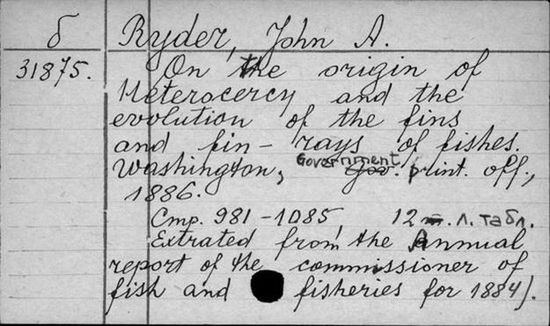 б Ryder, John A.
31875. On the origin of
Heterocercy and the
evolution of the fins
and fin-rays of fishes.
Washington, Government print. off.,
1886.
Стр. 981-1085, 12 л. табл.
Extrated from the Annual
report of the commissioner of
fish and fisheries for 1884).